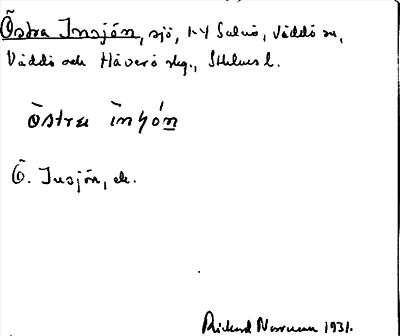 Östra Insjön, sjö, 1-4 Salnö, Väddö sn,
Väddö och Häverö skg., Sthlms l.
östra insjön
Ö. Insjön, ek.
Rickard Norrman 1931.